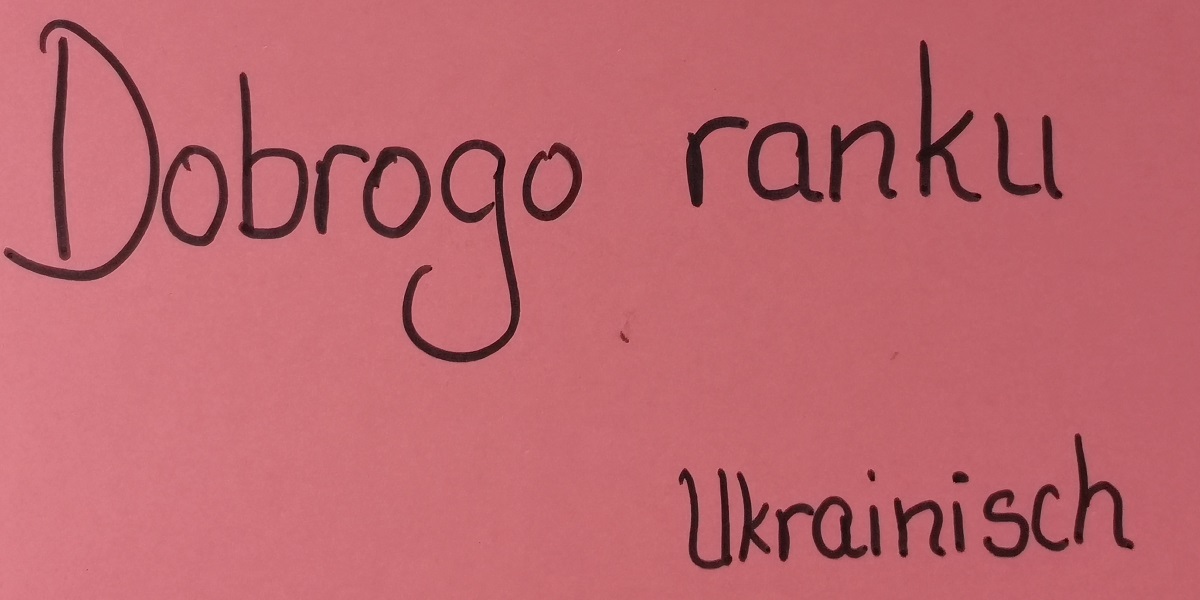 Dobrogo ranku
Ukrainisch